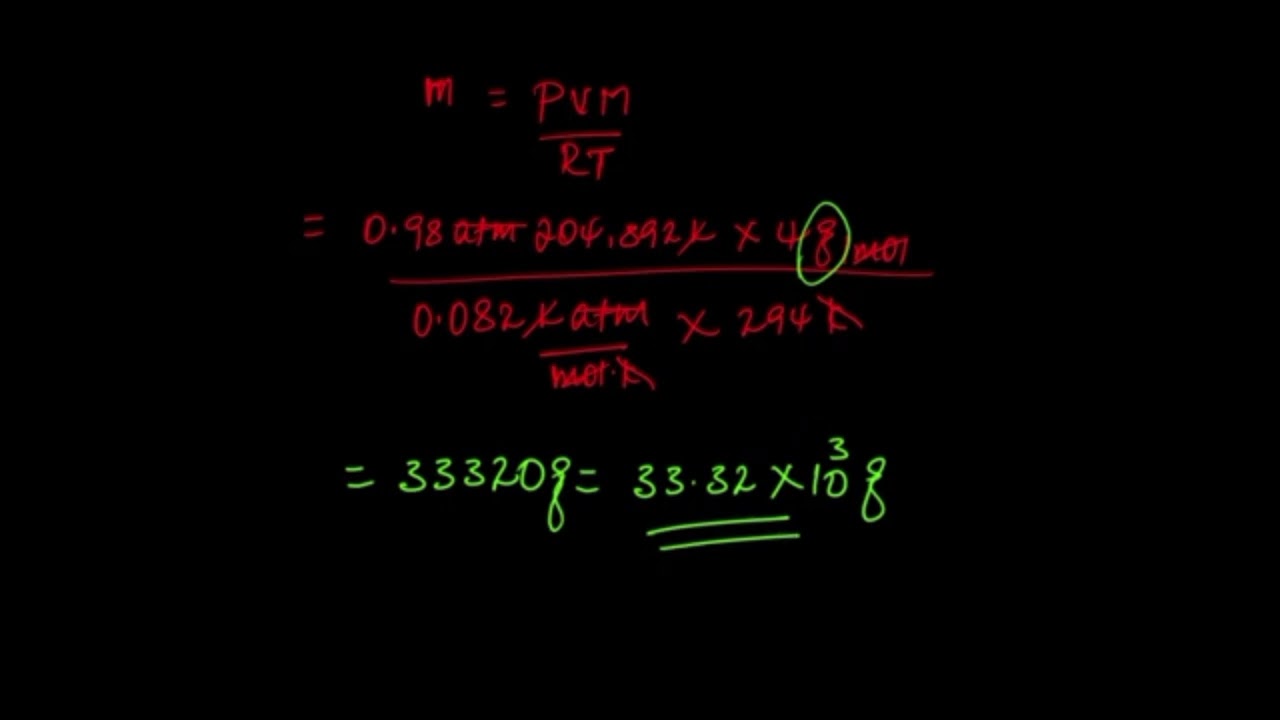 m = PVM
RT
= 0.98 atm 204,892L × 4 g/mol
0.082 L atm × 294 K
mol·K
= 33320g = 33.32 × 10³ g